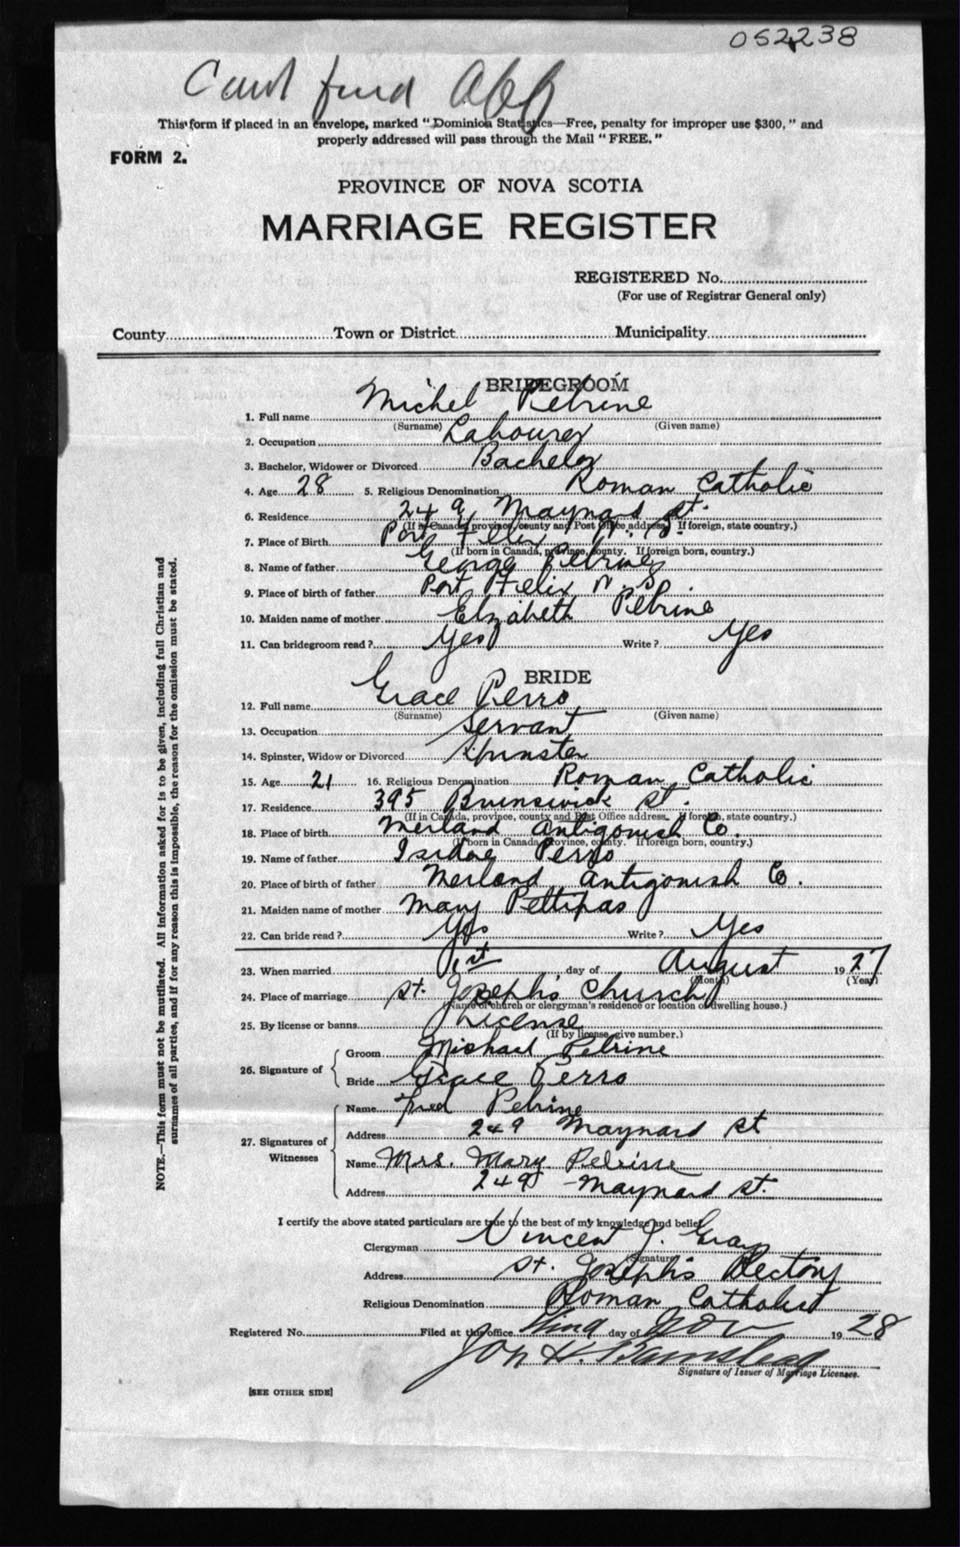 052238
Cant find App
This form if placed in an envelope, marked "Dominion Statistics—Free, penalty for improper use $300," and
properly addressed will pass through the Mail "FREE."
FORM 2.
PROVINCE OF NOVA SCOTIA
MARRIAGE REGISTER
REGISTERED No.
(For use of Registrar General only)
County Town or District Municipality
BRIDEGROOM
1. Full name Michel Petrine
(Surname) (Given name)
2. Occupation Labourer
3. Bachelor, Widower or Divorced Bachelor
4. Age 28 5. Religious Denomination Roman Catholic
6. Residence 249 Maynard St.
(If in Canada, province, county and Post Office address. If foreign, state country.)
7. Place of Birth Port Felix N. S.
(If born in Canada, province, county. If foreign born, country.)
8. Name of father George Petrine
9. Place of birth of father Port Felix N. S.
10. Maiden name of mother Elizabeth Petrine
11. Can bridegroom read? Yes Write? Yes
BRIDE
12. Full name Grace Perro
(Surname) (Given name)
13. Occupation Servant
14. Spinster, Widow or Divorced Spinster
15. Age 21 16. Religious Denomination Roman Catholic
17. Residence 395 Brunswick St.
(If in Canada, province, county and Post Office address. If foreign, state country.)
18. Place of birth Merland Antigonish Co.
(If born in Canada, province, county. If foreign born, country.)
19. Name of father Isidore Perro
20. Place of birth of father Merland Antigonish Co.
21. Maiden name of mother Mary Pettipas
22. Can bride read? Yes Write? Yes
23. When married 1st day of August 1927
(Month) (Year)
24. Place of marriage St. Joseph's Church
(Name of church or clergyman's residence or location of dwelling house.)
25. By license or banns License
(If by license, give number.)
26. Signature of
Groom Michael Petrine
Bride Grace Perro
27. Signatures of Witnesses
Name Fred Petrine
Address 249 Maynard St
Name Mrs. Mary Petrine
Address 249 Maynard St.
I certify the above stated particulars are true to the best of my knowledge and belief.
Clergyman Vincent J. Gray
Signature
Address St. Joseph's Rectory
Religious Denomination Roman Catholic
Registered No. Filed at this office day of Nov 1928
Signature of Issuer of Marriage Licenses.
[SEE OTHER SIDE]
NOTE.—This form must not be mutilated. All information asked for is to be given, including full Christian and
surnames of all parties, and if for any reason this is impossible, the reason for the omission must be stated.